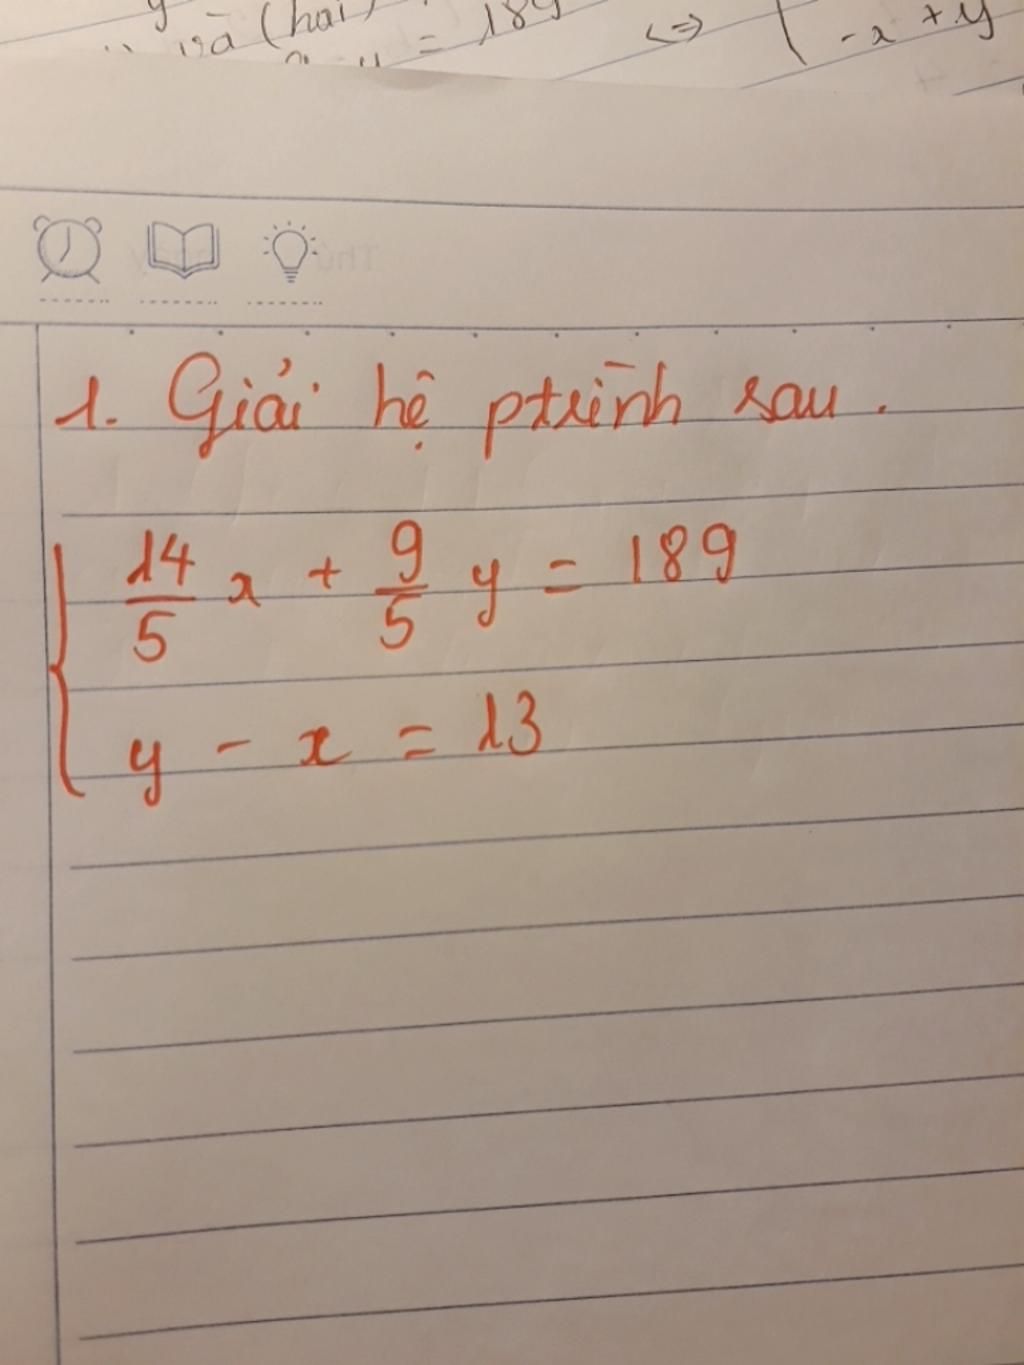 và (hai)
= 189 <=> -x + y
1. Giải hệ ptrình sau.
14/5 x + 9/5 y = 189
y - x = 13